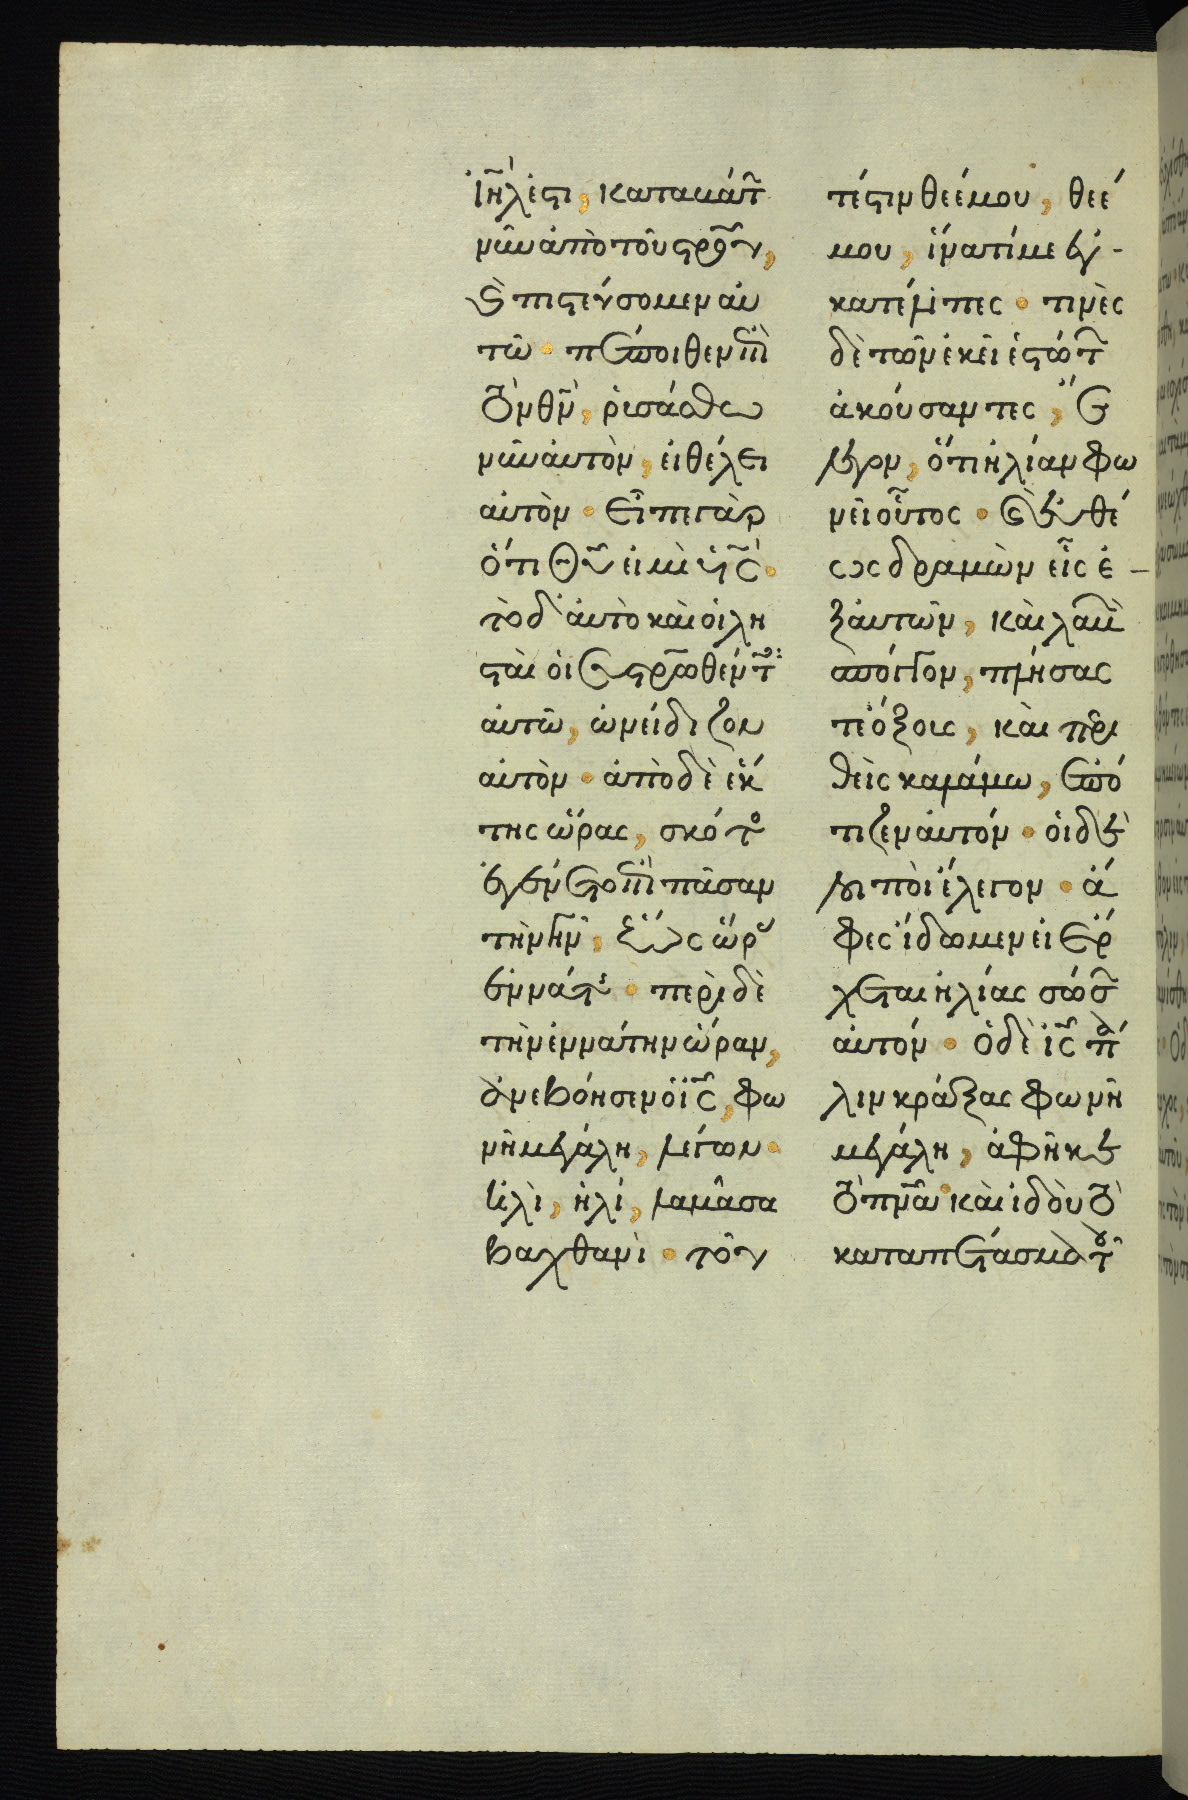 ἰη̃λ ἐστι, καταβάτ
νῦν ἀπὸ τοῦ στροῦ,
καὶ πιστεύσομεν αυ
τῶ · πέποιθεν ἐπὶ
τὸν θν̃, ῥυσάσθω
νῦν ἀυτὸν, εἰ θέλει
αὐτὸν · εἶπε γὰρ
ὅτι θυ̃ εἰμὶ υἱς̃ ·
τὸ δ' ἀυτὸ καὶ οἱ λη
σταὶ οἱ συσταυρωθέντες
αὐτῶ, ὠνείδιζον
αὐτὸν · ἀπὸ δὲ ἕκ
της ὥρας, σκότος
ἐγένετο ἐπὶ πᾶσαν
τὴν γῆν, ἕως ὥρας
ἐννάτης · περὶ δὲ
τὴν ἐννάτην ὥραν,
ἀνεβόησεν ὁ ις̃, φω
νῆ μεγάλη, λέγων ·
ἠλὶ, ἠλὶ, λαμᾶ σα
βαχθανὶ · τοῦ
τέστιν θεέ μου, θεέ
μου, ἱνατί με ἐγ-
κατέλιπες · τινὲς
δὲ τῶν ἐκεῖ ἑστώτ
ἀκούσαντες, ἔ
λεγον, ὅτι ἠλίαν φω
νεῖ οὗτος · καὶ εὐθέ
ως δραμὼν εἷς ἐ-
ξ αὐτῶν, καὶ λαβὼ
σπόγγον, πλήσας
τε ὄξους, καὶ περι
θεὶς καλάμω, ἐπό
τιζεν αὐτόν · οἱ δὲ
λοιποὶ ἔλεγον · ἄ
φες ἴδωμεν εἰ ἔρ
χεται ἠλίας σώσ
αὐτόν · ὁ δὲ ις̃ πά
λιν κράξας φωνῆ
μεγάλη, ἀφῆκε
τὸ πνᾶ · καὶ ἰδοὺ τὸ
καταπέτασμα τοῦ